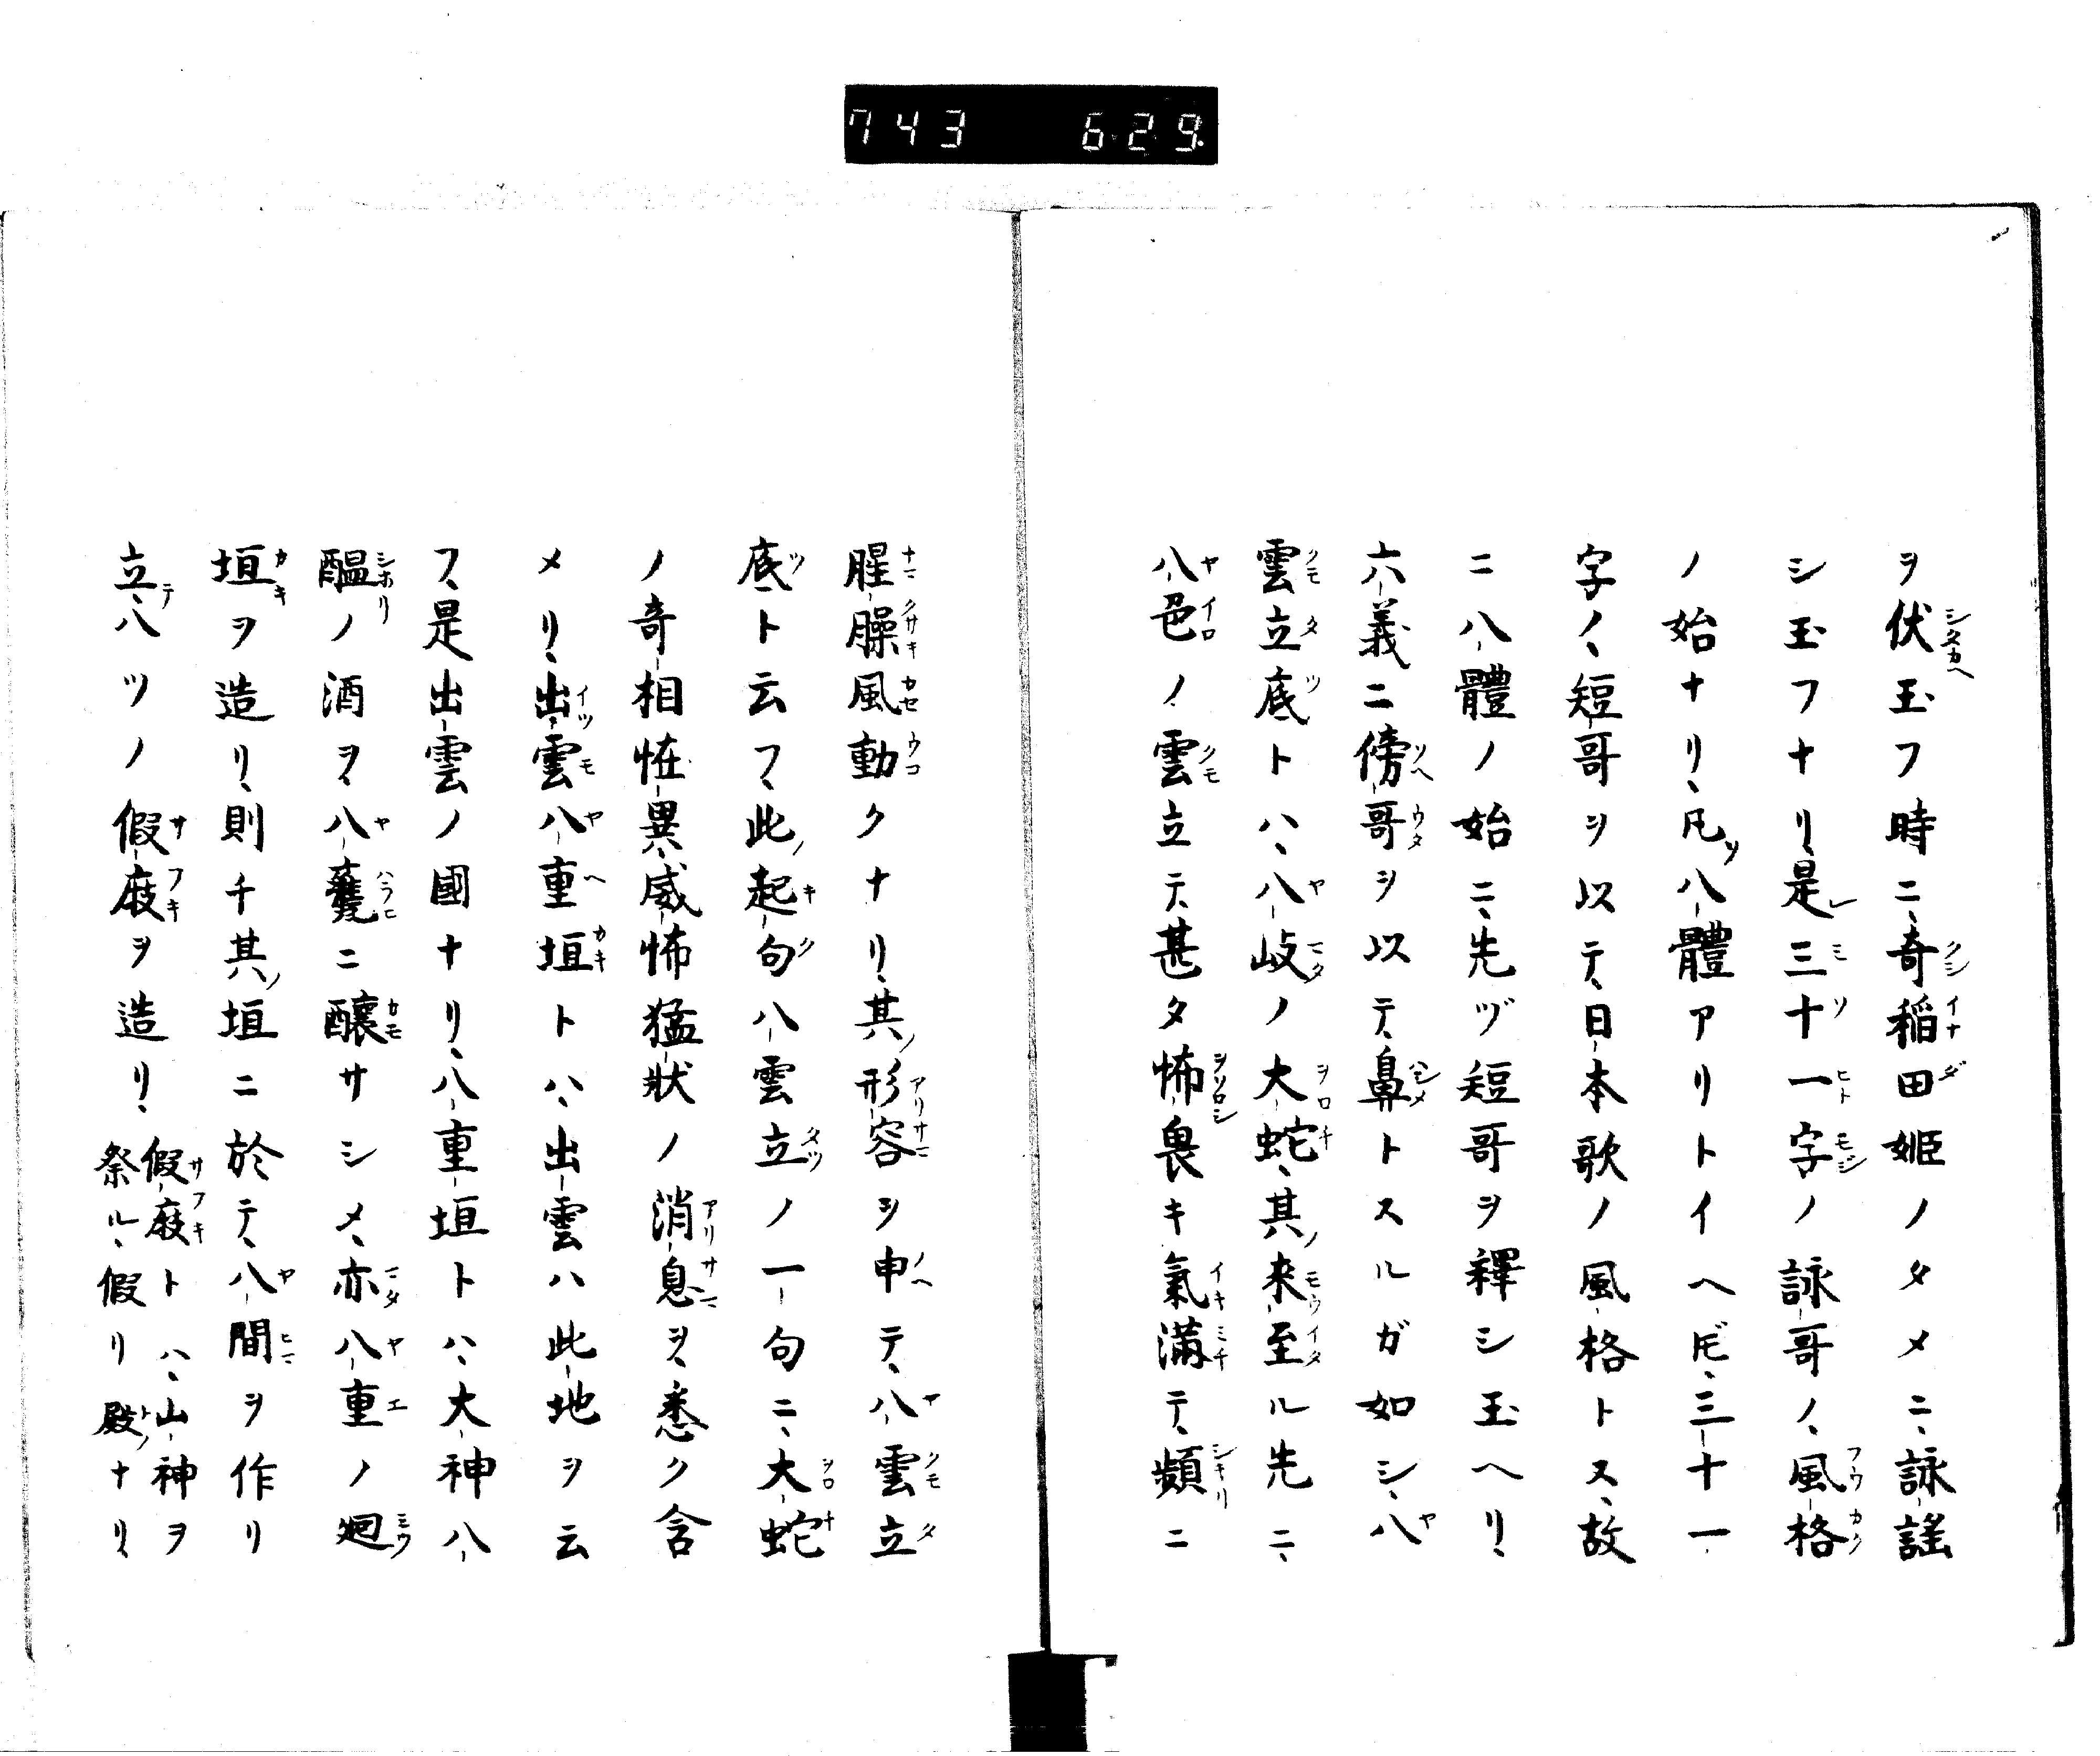 743 629
ヲ伏玉フ時ニ、奇稲田姫ノタメニ、詠謡
シ玉フナリ、是三十一字ノ詠哥ノ、風格
ノ始ナリ、凡八體アリトイヘ𪜈、三十一
字ノ、短哥ヲ以テ、日本歌ノ風格トス、故
ニ八體ノ始ニ、先ヅ短哥ヲ釋シ玉ヘリ、
六義ニ傍哥ヲ以テ、鼻トスルガ如シ、八
雲立底トハ、八岐ノ大蛇、其来至ル先ニ、
八色ノ雲立テ、甚タ怖畏キ氣満テ、頻ニ
腥臊風動クナリ、其形容ヲ申テ、八雲立
底ト云フ、此起句八雲立ノ一句ニ、大蛇
ノ奇相恠異、威怖猛状ノ消息ヲ、悉ク含
メリ、出雲八重垣トハ、出雲ハ此地ヲ云
フ、是出雲ノ國ナリ、八重垣トハ、大神八
醞ノ酒ヲ、八甕ニ醸サシメ、亦八重ノ廻
垣ヲ造リ、則チ其垣ニ於テ、八間ヲ作リ
立、八ツノ假庪ヲ造リ、假庪トハ、山神ヲ
祭ル、假リ殿ナリ、